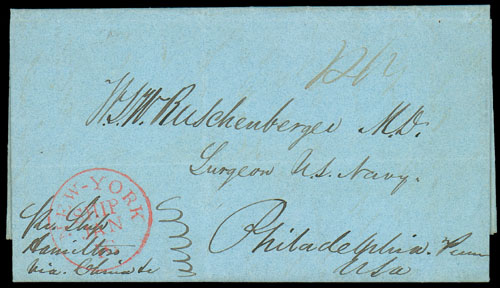 W.S.W. Ruschenberger M.D.
Surgeon U.S. Navy.
Philadelphia. Penn
USA
NEW-YORK
SHIP
JAN
Per Ship
Hamilton
via.